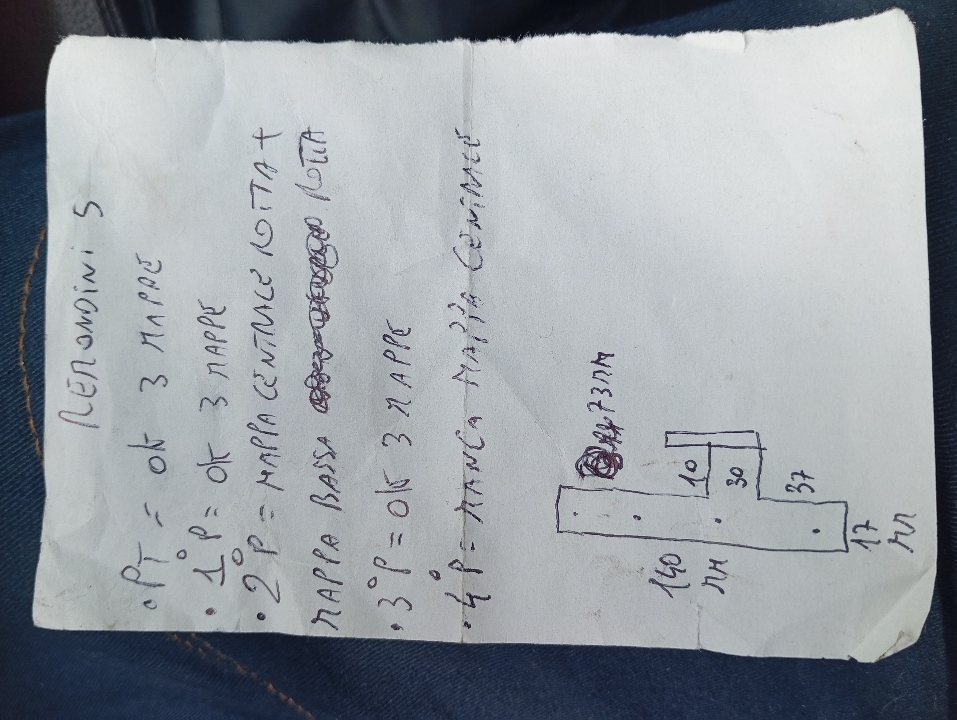 REMONDINI 5
• PT = OK 3 MAPPE
• 1°P = OK 3 MAPPE
• 2°P = MAPPA CENTRALE ROTTA +
MAPPA BASSA ROTTA
• 3°P = OK 3 MAPPE
• 4°P = MANCA MAPPA CENTRALE
73 MM
10
30
37
140
MM
17
MM